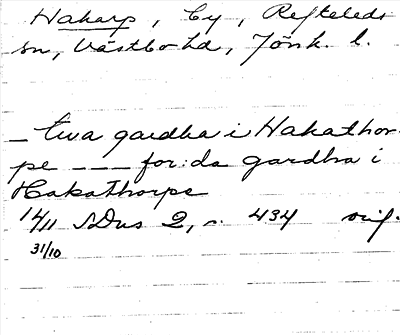 Hakarp, by, Refteleds
sn, Västbo hd, Jönk. l.
_ twa gardha i Hakathor-
pe _ _ _ for:da gardha i
Hakathorpe
14/11 SDns 2, s. 434 orig.
31/10